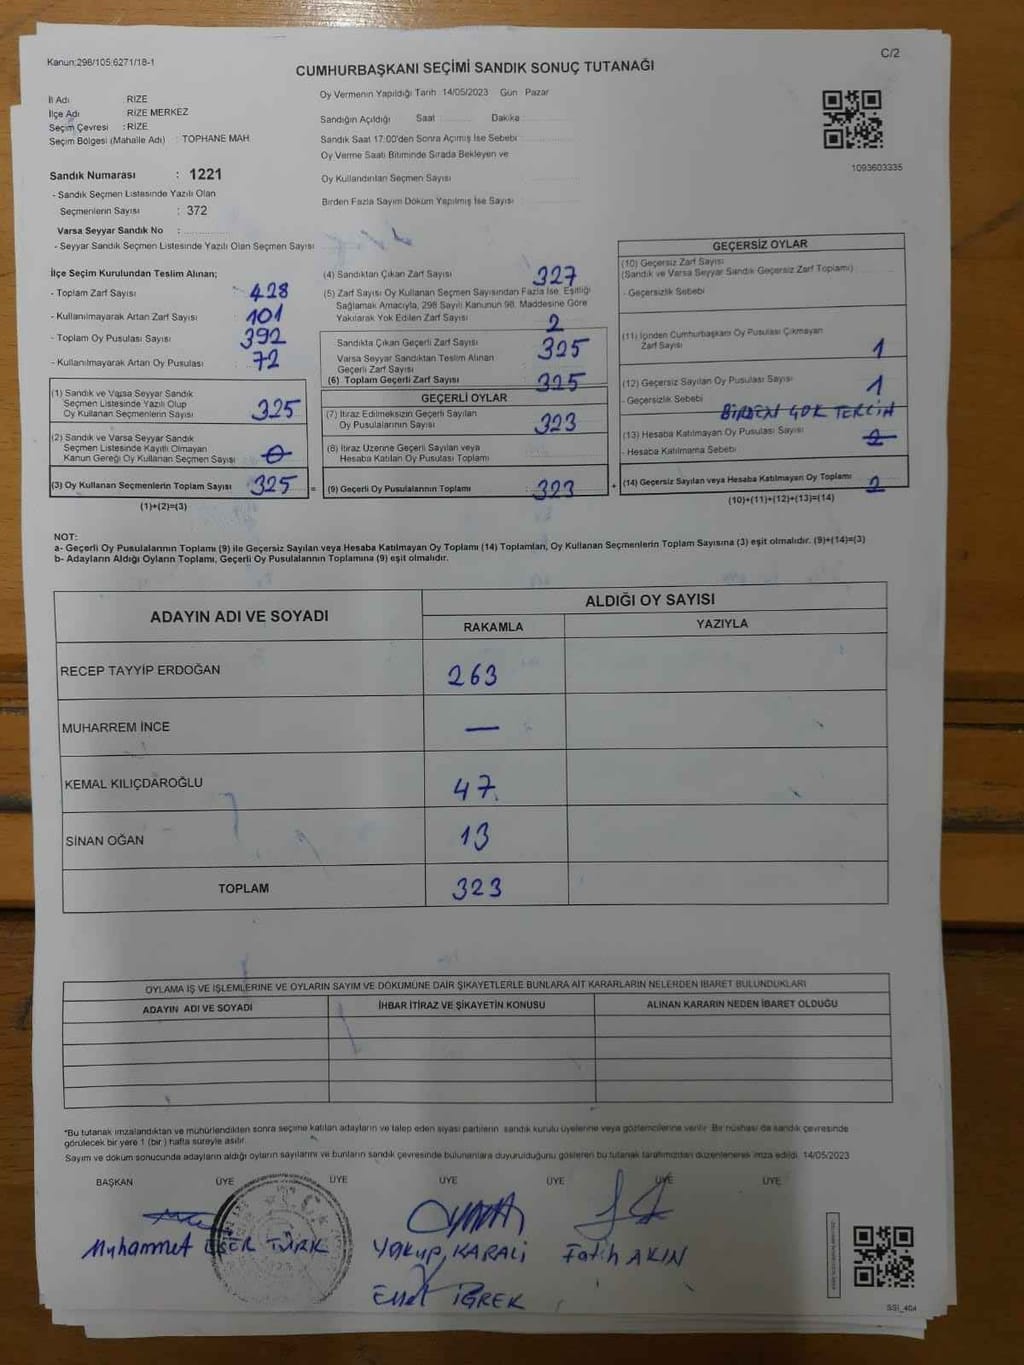 Kanun:298/105:6271/18-1
C/2
CUMHURBAŞKANI SEÇİMİ SANDIK SONUÇ TUTANAĞI
Oy Vermenin Yapıldığı Tarih 14/05/2023 Gün Pazar
İl Adı RİZE
İlçe Adı RİZE MERKEZ
Seçim Çevresi : RİZE
Seçim Bölgesi (Mahalle Adı) : TOPHANE MAH.
Sandığın Açıldığı Saat Dakika
Sandık Saat 17:00'den Sonra Açılmış İse Sebebi
Oy Verme Saati Bitiminde Sırada Bekleyen ve
Oy Kullandırılan Seçmen Sayısı
Birden Fazla Sayım Döküm Yapılmış İse Sayısı
1093603335
Sandık Numarası : 1221
- Sandık Seçmen Listesinde Yazılı Olan
Seçmenlerin Sayısı : 372
Varsa Seyyar Sandık No :
- Seyyar Sandık Seçmen Listesinde Yazılı Olan Seçmen Sayısı
İlçe Seçim Kurulundan Teslim Alınan;
- Toplam Zarf Sayısı 428
- Kullanılmayarak Artan Zarf Sayısı 101
- Toplam Oy Pusulası Sayısı 392
- Kullanılmayarak Artan Oy Pusulası 72
(1) Sandık ve Varsa Seyyar Sandık
Seçmen Listesinde Yazılı Olup
Oy Kullanan Seçmenlerin Sayısı 325
(2) Sandık ve Varsa Seyyar Sandık
Seçmen Listesinde Kayıtlı Olmayan
Kanun Gereği Oy Kullanan Seçmen Sayısı 0
(3) Oy Kullanan Seçmenlerin Toplam Sayısı 325 =
(1)+(2)=(3)
(4) Sandıktan Çıkan Zarf Sayısı 327
(5) Zarf Sayısı Oy Kullanan Seçmen Sayısından Fazla İse, Eşitliği
Sağlamak Amacıyla, 298 Sayılı Kanunun 98. Maddesine Göre
Yakılarak Yok Edilen Zarf Sayısı 2
Sandıkta Çıkan Geçerli Zarf Sayısı 325
Varsa Seyyar Sandıktan Teslim Alınan
Geçerli Zarf Sayısı
(6) Toplam Geçerli Zarf Sayısı 325
GEÇERLİ OYLAR
(7) İtiraz Edilmeksizin Geçerli Sayılan
Oy Pusulalarının Sayısı 323
(8) İtiraz Üzerine Geçerli Sayılan veya
Hesaba Katılan Oy Pusulası Toplamı
(9) Geçerli Oy Pusulalarının Toplamı 323 +
GEÇERSİZ OYLAR
(10) Geçersiz Zarf Sayısı
(Sandık ve Varsa Seyyar Sandık Geçersiz Zarf Toplamı)
- Geçersizlik Sebebi
(11) İçinden Cumhurbaşkanı Oy Pusulası Çıkmayan
Zarf Sayısı 1
(12) Geçersiz Sayılan Oy Pusulası Sayısı 1
- Geçersizlik Sebebi BİRDEN ÇOK TERCİH
(13) Hesaba Katılmayan Oy Pusulası Sayısı 2
- Hesaba Katılmama Sebebi
(14) Geçersiz Sayılan veya Hesaba Katılmayan Oy Toplamı 2
(10)+(11)+(12)+(13)=(14)
NOT:
a- Geçerli Oy Pusulalarının Toplamı (9) ile Geçersiz Sayılan veya Hesaba Katılmayan Oy Toplamı (14) Toplamları, Oy Kullanan Seçmenlerin Toplam Sayısına (3) eşit olmalıdır. (9)+(14)=(3)
b- Adayların Aldığı Oyların Toplamı, Geçerli Oy Pusulalarının Toplamına (9) eşit olmalıdır.
ADAYIN ADI VE SOYADI
ALDIĞI OY SAYISI
RAKAMLA YAZIYLA
RECEP TAYYİP ERDOĞAN 263
MUHARREM İNCE —
KEMAL KILIÇDAROĞLU 47
SİNAN OĞAN 13
TOPLAM 323
OYLAMA İŞ VE İŞLEMLERİNE VE OYLARIN SAYIM VE DÖKÜMÜNE DAİR ŞİKAYETLERLE BUNLARA AİT KARARLARIN NELERDEN İBARET BULUNDUKLARI
ADAYIN ADI VE SOYADI İHBAR İTİRAZ VE ŞİKAYETİN KONUSU ALINAN KARARIN NEDEN İBARET OLDUĞU
*Bu tutanak imzalandıktan ve mühürlendikten sonra seçime katılan adayların ve talep eden siyasi partilerin sandık kurulu üyelerine veya gözlemcilerine verilir. Bir nüshası da sandık çevresinde
görülecek bir yere 1 (bir) hafta süreyle asılır.
Sayım ve döküm sonucunda adayların aldığı oyların sayılarını ve bunların sandık çevresinde bulunanlara duyurulduğunu gösteren bu tutanak tarafımızdan düzenlenerek imza edildi. 14/05/2023
BAŞKAN ÜYE ÜYE ÜYE ÜYE ÜYE ÜYE
Muhammet ESER TÜRK Yakup KARALİ Fatih AKIN
İĞREK
SSİ_40A